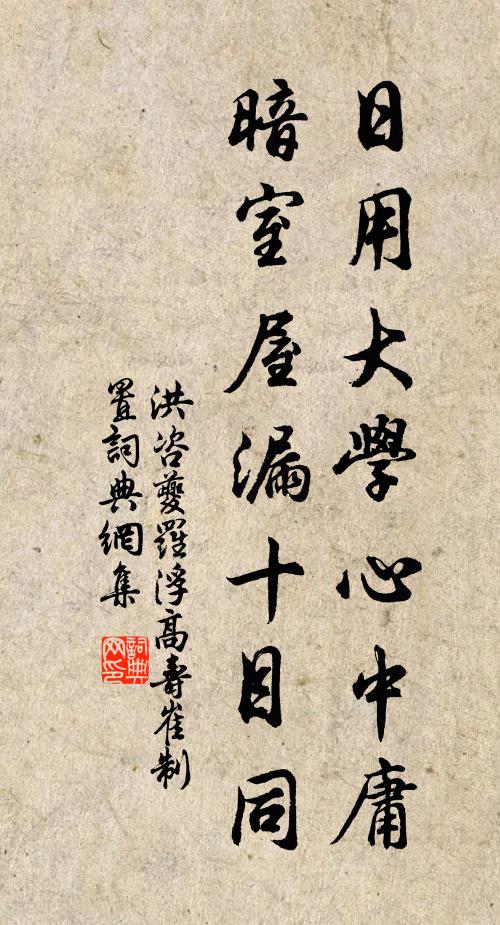 日用大學心中庸
暗室屋漏十目同
洪咨夔羅浮高壽崔制
置詞典網集
詞典網印